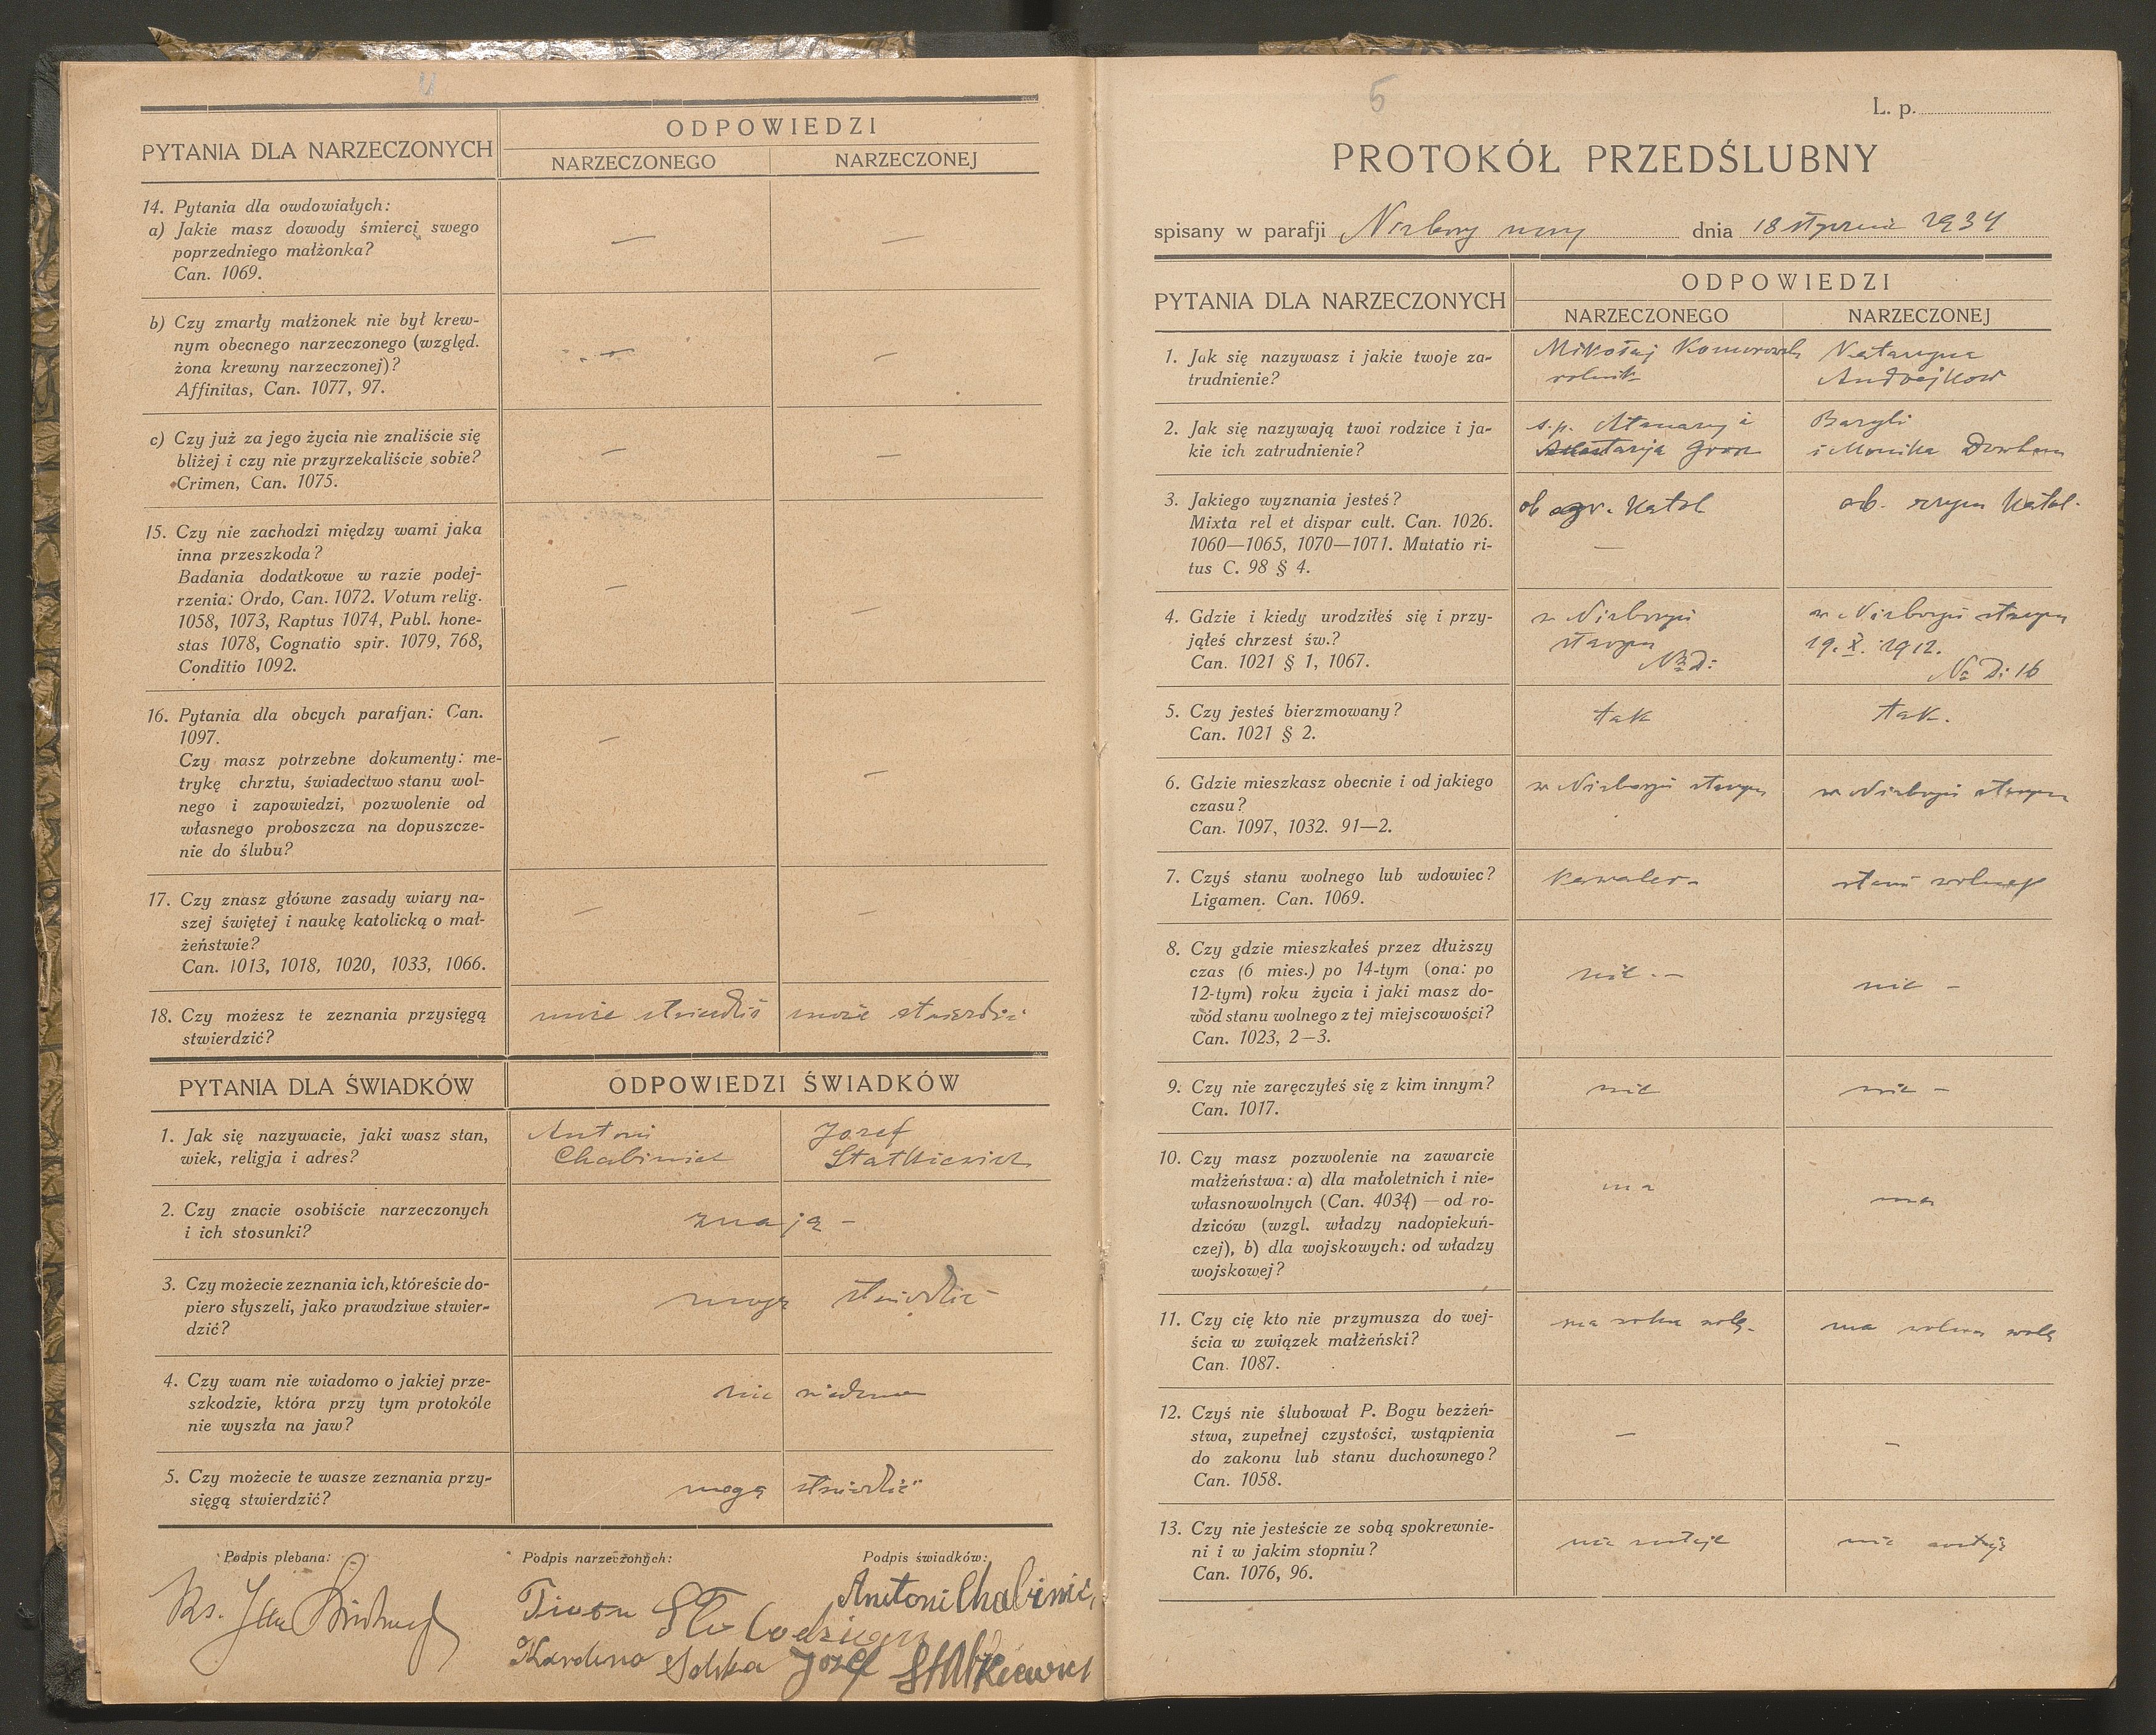 4
PYTANIA DLA NARZECZONYCH
ODPOWIEDZI
NARZECZONEGO
NARZECZONEJ
14. Pytania dla owdowiałych:
a) Jakie masz dowody śmierci swego
poprzedniego małżonka?
Can. 1069.
—
—
b) Czy zmarły małżonek nie był krew-
nym obecnego narzeczonego (względ.
żona krewny narzeczonej)?
Affinitas, Can. 1077, 97.
—
—
c) Czy już za jego życia nie znaliście się
bliżej i czy nie przyrzekaliście sobie?
Crimen, Can. 1075.
—
—
15. Czy nie zachodzi między wami jaka
inna przeszkoda?
Badania dodatkowe w razie podej-
rzenia: Ordo, Can. 1072. Votum relig.
1058, 1073, Raptus 1074, Publ. hone-
stas 1078, Cognatio spir. 1079, 768,
Conditio 1092.
—
—
16. Pytania dla obcych parafjan: Can.
1097.
Czy masz potrzebne dokumenty: me-
trykę chrztu, świadectwo stanu wol-
nego i zapowiedzi, pozwolenie od
własnego proboszcza na dopuszcze-
nie do ślubu?
—
—
17. Czy znasz główne zasady wiary na-
szej świętej i naukę katolicką o mał-
żeństwie?
Can. 1013, 1018, 1020, 1033, 1066.
—
—
18. Czy możesz te zeznania przysięgą
stwierdzić?
może stwierdzić
może stwierdzić
PYTANIA DLA ŚWIADKÓW
ODPOWIEDZI ŚWIADKÓW
1. Jak się nazywacie, jaki wasz stan,
wiek, religja i adres?
Antoni
Chabiniec
Jozef
Statkiewicz
2. Czy znacie osobiście narzeczonych
i ich stosunki?
znają –
3. Czy możecie zeznania ich, któreście do-
piero słyszeli, jako prawdziwe stwier-
dzić?
mogą stwierdzić
4. Czy wam nie wiadomo o jakiej prze-
szkodzie, która przy tym protokóle
nie wyszła na jaw?
nie wiadomo
5. Czy możecie te wasze zeznania przy-
sięgą stwierdzić?
mogą stwierdzić
Podpis plebana:
Podpis narzeczonych:
Podpis świadków:
Ks. Jan
Antoni Chabiniec
Karolina Solska
Józef Statkiewicz
5
L. p.
PROTOKÓŁ PRZEDŚLUBNY
spisany w parafji Niżbory nowy dnia 18 stycznia 1934
PYTANIA DLA NARZECZONYCH
ODPOWIEDZI
NARZECZONEGO
NARZECZONEJ
1. Jak się nazywasz i jakie twoje za-
trudnienie?
Mikołaj Komorowski
rolnik
Katarzyna
Andrejkow
2. Jak się nazywają twoi rodzice i ja-
kie ich zatrudnienie?
s.p. Atanazy i
Bazyli
i Monika
3. Jakiego wyznania jesteś?
Mixta rel et dispar cult. Can. 1026.
1060—1065, 1070—1071. Mutatio ri-
tus C. 98 § 4.
ob gr. katol
—
ob. rzym katol.
4. Gdzie i kiedy urodziłeś się i przy-
jąłeś chrzest św.?
Can. 1021 § 1, 1067.
w Niżborgu
starym
No D:
w Niżborgu starym
19. X. 1912.
No D: 16
5. Czy jesteś bierzmowany?
Can. 1021 § 2.
tak
tak.
6. Gdzie mieszkasz obecnie i od jakiego
czasu?
Can. 1097, 1032. 91—2.
w Niżborgu starym
w Niżborgu starym
7. Czyś stanu wolnego lub wdowiec?
Ligamen. Can. 1069.
kawaler –
stanu wolnego
8. Czy gdzie mieszkałeś przez dłuższy
czas (6 mies.) po 14-tym (ona: po
12-tym) roku życia i jaki masz do-
wód stanu wolnego z tej miejscowości?
Can. 1023, 2—3.
nie. –
nie –
9. Czy nie zaręczyłeś się z kim innym?
Can. 1017.
nie
nie –
10. Czy masz pozwolenie na zawarcie
małżeństwa: a) dla małoletnich i nie-
własnowolnych (Can. 4034) — od ro-
dziców (wzgl. władzy nadopiekuń-
czej), b) dla wojskowych: od władzy
wojskowej?
ma
ma
11. Czy cię kto nie przymusza do wej-
ścia w związek małżeński?
Can. 1087.
ma wolną wolę
ma wolną wolę
12. Czyś nie ślubował P. Bogu bezżeń-
stwa, zupełnej czystości, wstąpienia
do zakonu lub stanu duchownego?
Can. 1058.
—
—
13. Czy nie jesteście ze sobą spokrewnie-
ni i w jakim stopniu?
Can. 1076, 96.
nie
nie